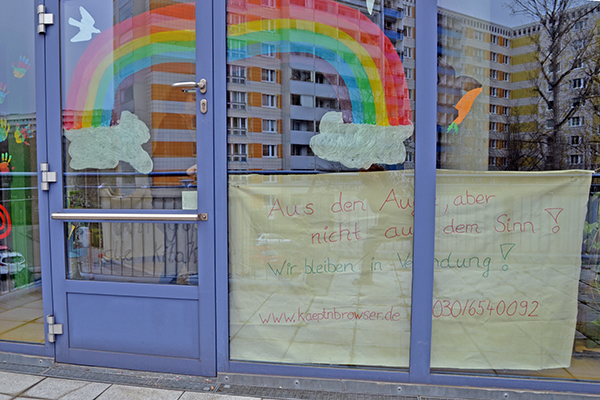 Aus den Aug , aber
nicht aus dem Sinn !
Wir bleiben in Ve ndung !
www.kaeptnbrowser.de 030/6540092